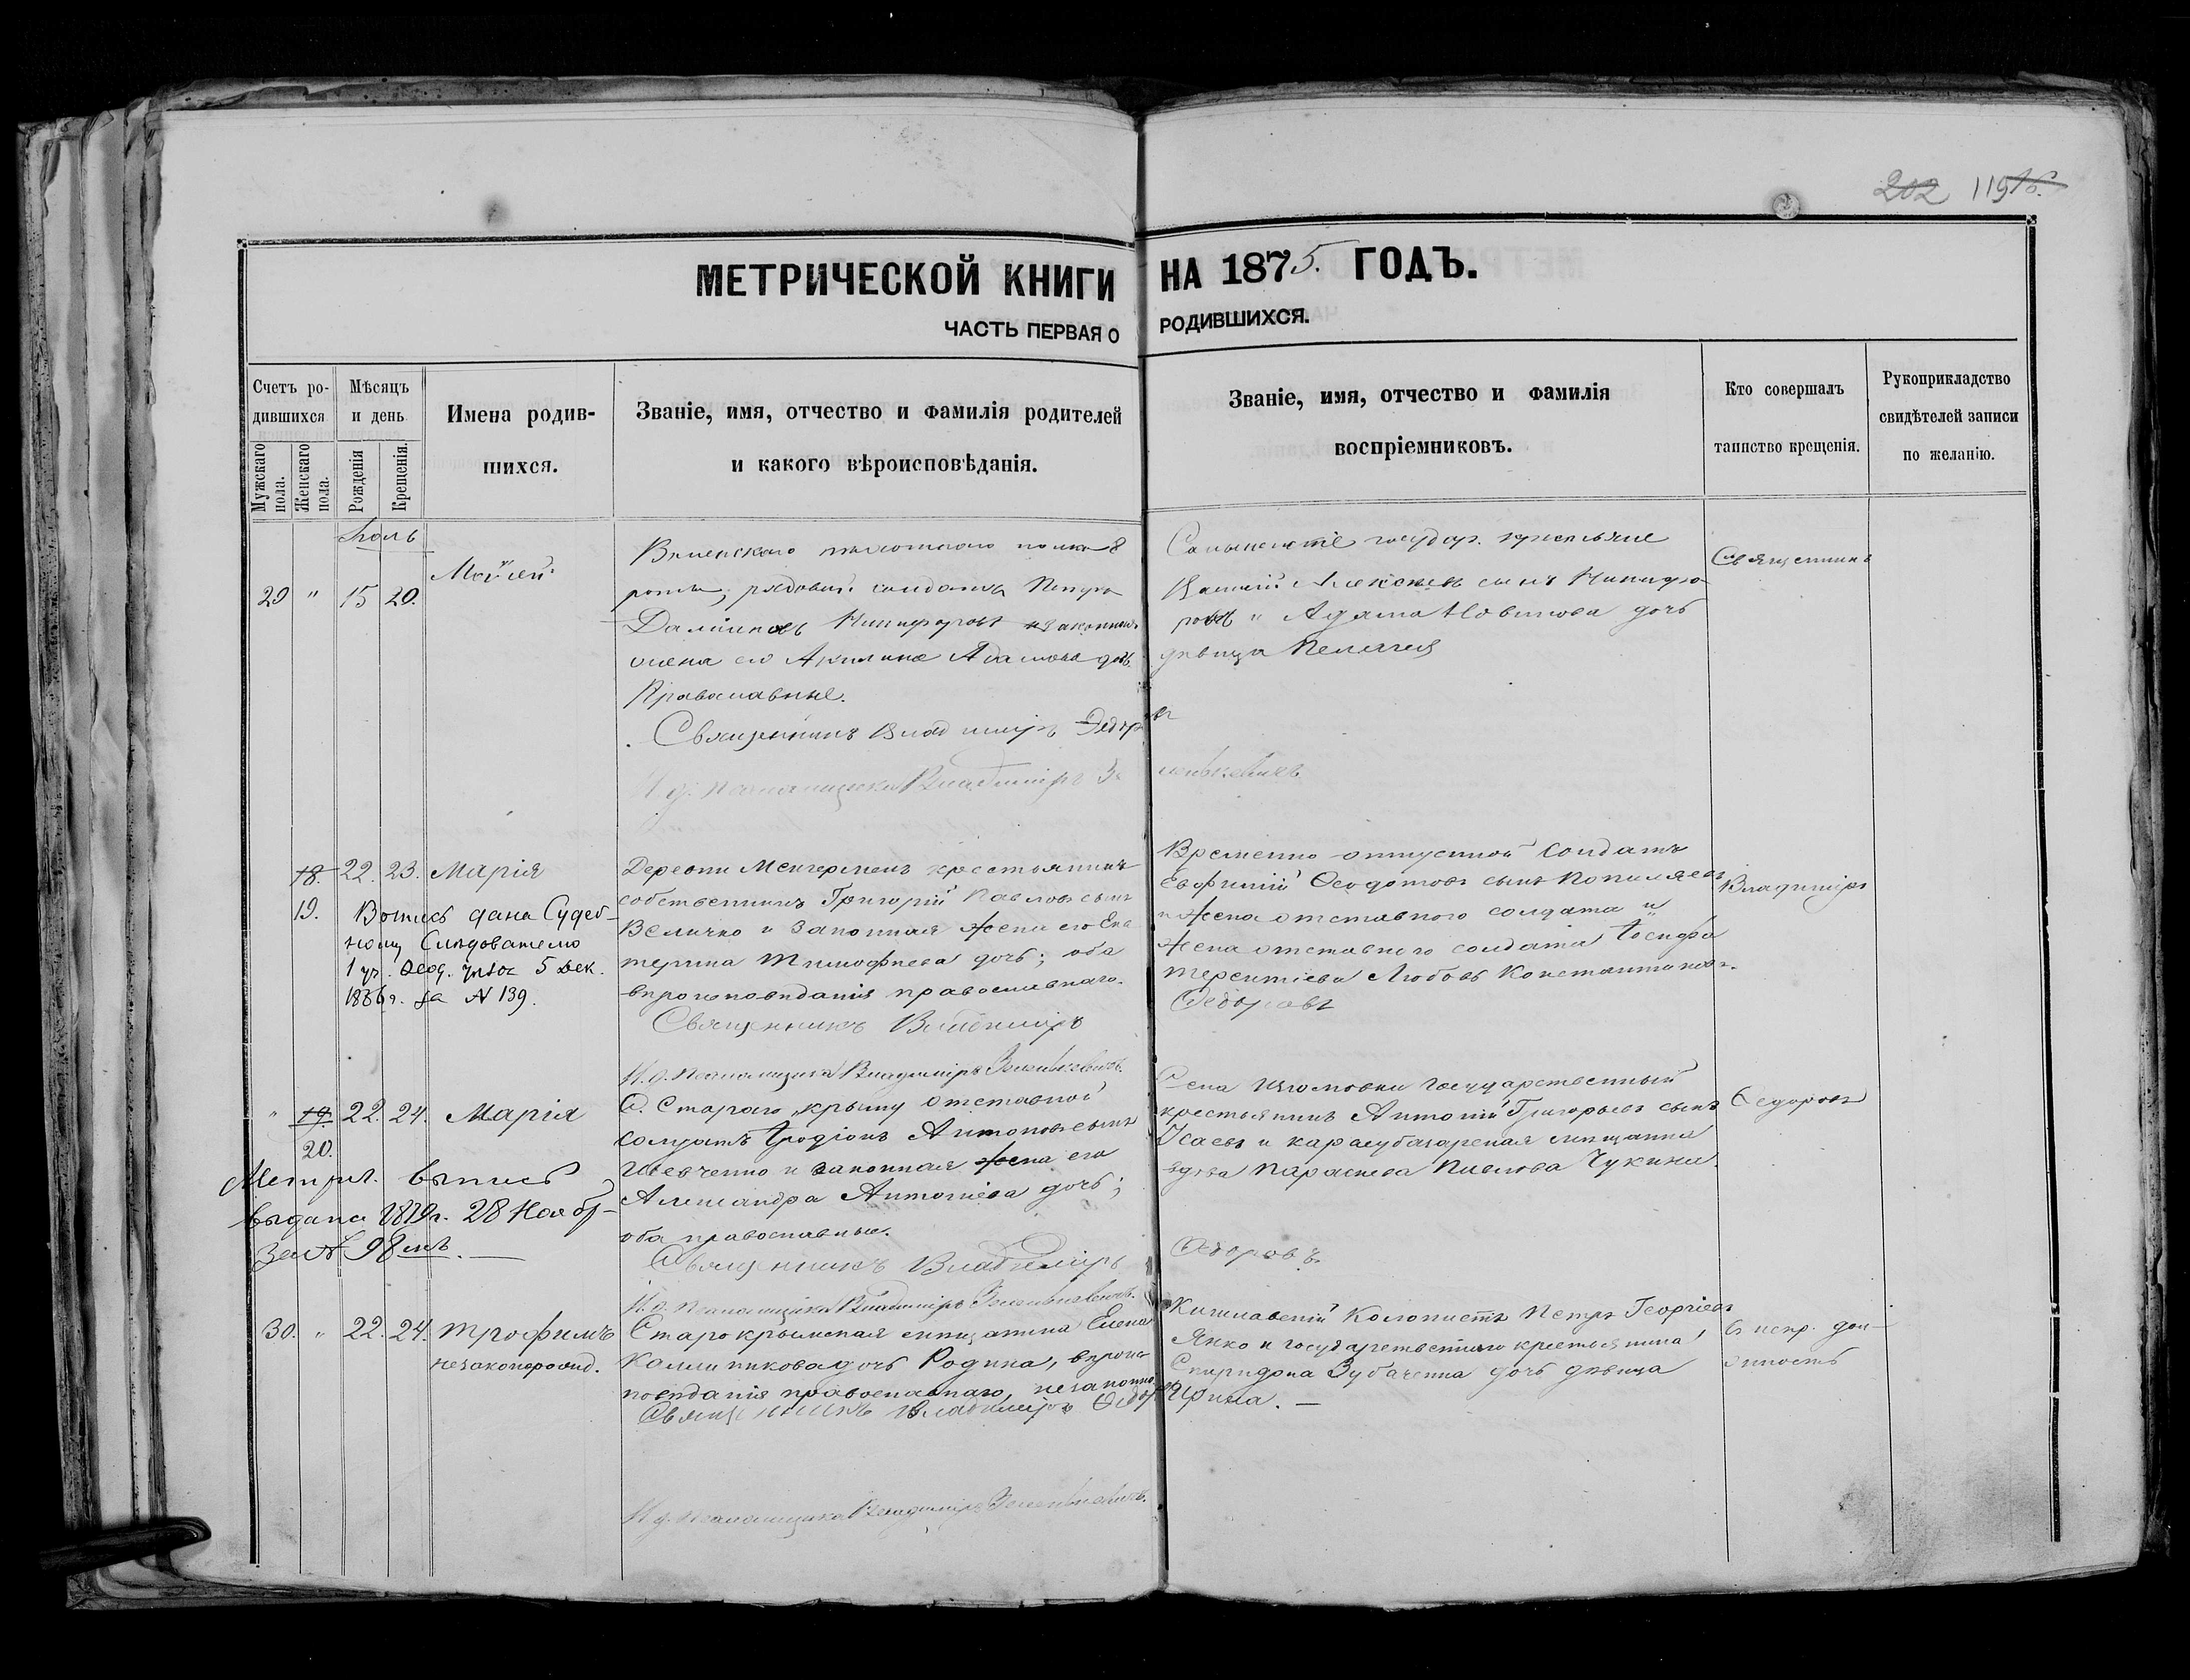 202 119 16.
МЕТРИЧЕСКОЙ КНИГИ НА 1875. ГОДЪ.
ЧАСТЬ ПЕРВАЯ О РОДИВШИХСЯ.
Счетъ ро-
дившихся
Мужскаго
пола.
Женскаго
пола.
Мѣсяцъ
и день
Рожденія
Крещенія.
Имена родив-
шихся.
Званіе, имя, отчество и фамилія родителей
и какого вѣроисповѣданія.
Званіе, имя, отчество и фамилія
воспріемниковъ.
Кто совершалъ
таинство крещенія.
Рукоприкладство
свидѣтелей записи
по желанію.
Іюль
29 " 15 20.
Моѵсей
Виленскаго пѣхотнаго полка 8
роты, рядовый солдатъ Петръ
Никифоровъ и законная
жена его Акилина Адамова дочь
Православные.
Священникъ Владиміръ Ѳедоровъ
И. д. Псаломщика Владиміръ Зеленькевичъ
государ.
Алексѣевъ сынъ Никифо
ровъ и Адама Новикова дочь
дѣвица Пелагея
Священникъ
18. 22. 23. Марія
19.
Вопись дана Судеб-
ному Слѣдователю
1 уч. Ѳеод. уѣзда 5 Дек.
1886 г. за № 139.
Деревни крестьянинъ
собственникъ Григорій Павловъ сынъ
Величко и законная жена его Ека
терина Тимофѣева дочь; оба
вѣроисповѣданія православнаго.
Священникъ Владиміръ Ѳедоровъ
И. д. Псаломщика Владиміръ Зеленькевичъ.
Временно отпускной солдатъ
Евфимій Ѳеодотовъ сынъ
и жена отставного солдата и
жена отставного солдата Іосифа
Терентіева Любовь Константинов.
Владиміръ
" 19. 22. 24. Марія
20.
Метрич. выпись
выдана 1879 г. 28 Нояб-
за № 98 мъ. —
Г. Стараго Крыму отставной
солдатъ Иродіонъ Антоновъ сынъ
Шевченко и законная жена его
Александра Антоніева дочь;
оба православные.
Священникъ Владиміръ Ѳедоровъ.
И. д. Псаломщика Владиміръ Зеленькевичъ.
Села Изюмовки Государственный
крестьянинъ Антоній Григорьевъ сынъ
Усаевъ и карасубазарская мѣщанка
вдова Параскева Павлова Чукина.
Ѳедоровъ
30. " 22. 24. Трофимъ
незаконорожд.
Старокрымская мѣщанка Елена
Каллиникова дочь Родина, вѣроис
повѣданія православнаго, незаконно.
Священникъ Владиміръ Ѳедоровъ
И. д. Псаломщика Владиміръ Зеленькевичъ.
Кишлавскій Колонистъ Петръ Георгіевъ
Янко и государственнаго крестьянина
Спиридона Зубаченка дочь дѣвица
Ирина. —
въ испр. дол-
жность